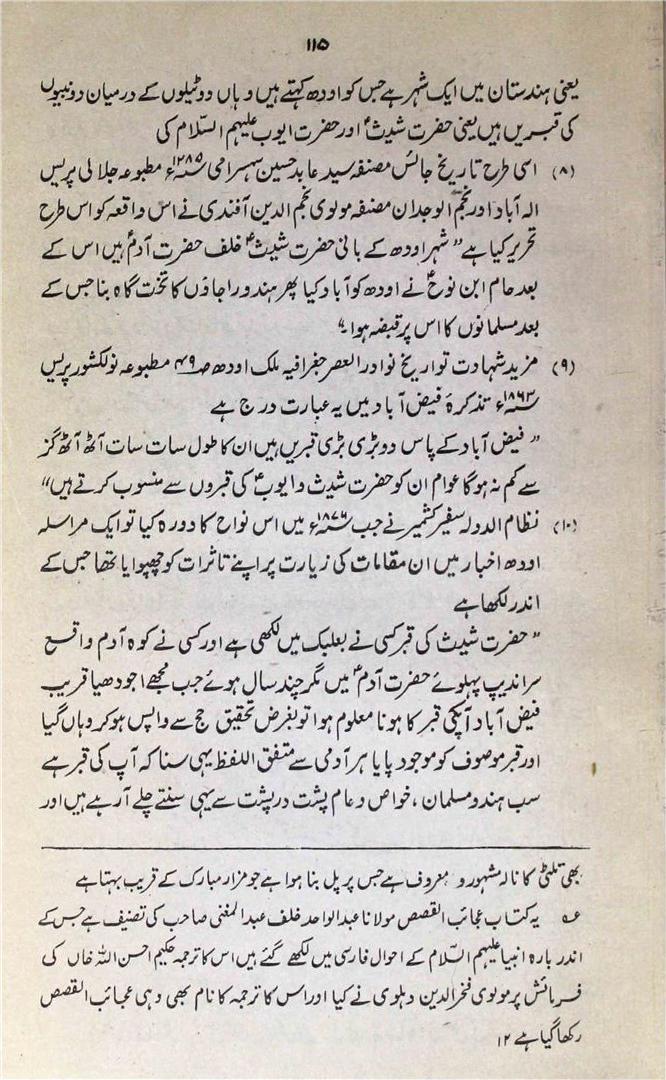 ۱۱۵
یعنی ہندستان میں ایک شہر ہے جس کو اودھ کہتے ہیں وہاں دو ٹیلوں کے درمیان دو نبیوں
کی قبریں ہیں یعنی حضرت شیثؑ اور حضرت ایوب علیہم السّلام کی
(۸) اسی طرح تاریخ جائس مصنفہ سید عابد حسین سہسرامی ۱۲۸۵ء مطبوعہ جلالی پریس
الہ آباد اور نجم الوجدان مصنفہ مولوی نجم الدین آفندی نے اس واقعہ کو اس طرح
تحریر کیا ہے " شہر اودھ کے بانی حضرت شیثؑ خلف حضرت آدمؑ ہیں اس کے
بعد حام ابن نوحؑ نے اودھ کو آباد کیا پھر ہندو راجاؤں کا تخت گاہ بنا جس کے
بعد مسلمانوں کا اس پر قبضہ ہوا۔"
(۹) مزید شہادت تواریخ نوادر العصر جغرافیہ ملک اودھ صـ۴۹ مطبوعہ نولکشور پریس
۱۸۶۳ء تذکرۂ فیض آباد میں یہ عبارت درج ہے
" فیض آباد کے پاس دو بڑی بڑی قبریں ہیں ان کا طول سات سات آٹھ آٹھ گز
سے کم نہ ہوگا عوام ان کو حضرت شیث و ایوبؑ کی قبروں سے منسوب کرتے ہیں"
(۱۰) نظام الدولہ سفیر کشمیر نے جب ۱۸۷۶ء میں اس نواح کا دورہ کیا تو ایک مراسلہ
اودھ اخبار میں ان مقامات کی زیارت پر اپنے تاثرات کو چھپوایا تھا جس کے
اندر لکھا ہے
" حضرت شیث کی قبر کسی نے بعلبک میں لکھی ہے اور کسی نے کوہ آدم واقع
سراندیپ پہلوئے حضرت آدمؑ میں مگر چند سال ہوئے جب مجھے اجودھیا قریب
فیض آباد آپکی قبر کا ہونا معلوم ہوا تو بغرض تحقیق حج سے واپس ہو کر وہاں گیا
اور قبر موصوف کو موجود پایا ہر آدمی سے متفق اللفظ یہی سنا کہ آپ کی قبر ہے
سب ہندو مسلمان ، خواص و عام پشت در پشت سے یہی سنتے چلے آرہے ہیں اور
بھی تلئی کا نالہ مشہور و معروف ہے جس پر پل بنا ہوا ہے جو مزار مبارک کے قریب بہتا ہے
عہ یہ کتاب عجائب القصص مولانا عبدالواحد خلف عبدالمغنی صاحب کی تصنیف ہے جس کے
اندر بارہ انبیا علیہم السّلام کے احوال فارسی میں لکھے گئے ہیں اس کا ترجمہ حکیم احسن اللہ خاں کی
فرمائش پر مولوی فخر الدین دہلوی نے کیا اور اس کا ترجمہ کا نام بھی وہی عجائب القصص
رکھا گیا ہے ۱۲